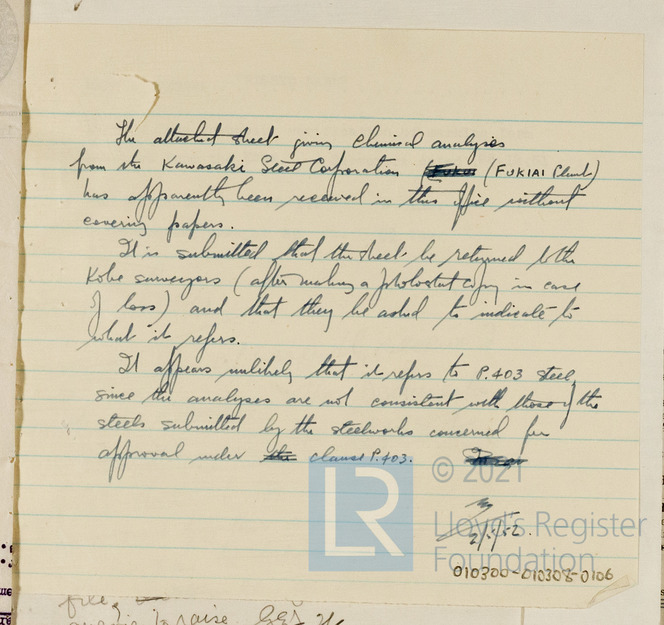 The attached sheet giving chemical analyses
from the Kawasaki Steel Corporation (FUKIAI Plant)
has apparently been received in this office without
covering papers.
It is submitted that the sheet be returned to the
Kobe surveyors (after making a photostat copy in case
of loss) and that they be asked to indicate to
what it refers.
It appears unlikely that it refers to P.403 steel,
since the analyses are not consistent with those of the
steels submitted by the steelworks concerned for
approval under the clause P.403.
© 2021
LR
Lloyd's Register
Foundation
010300-010308-0106
file,
to raise